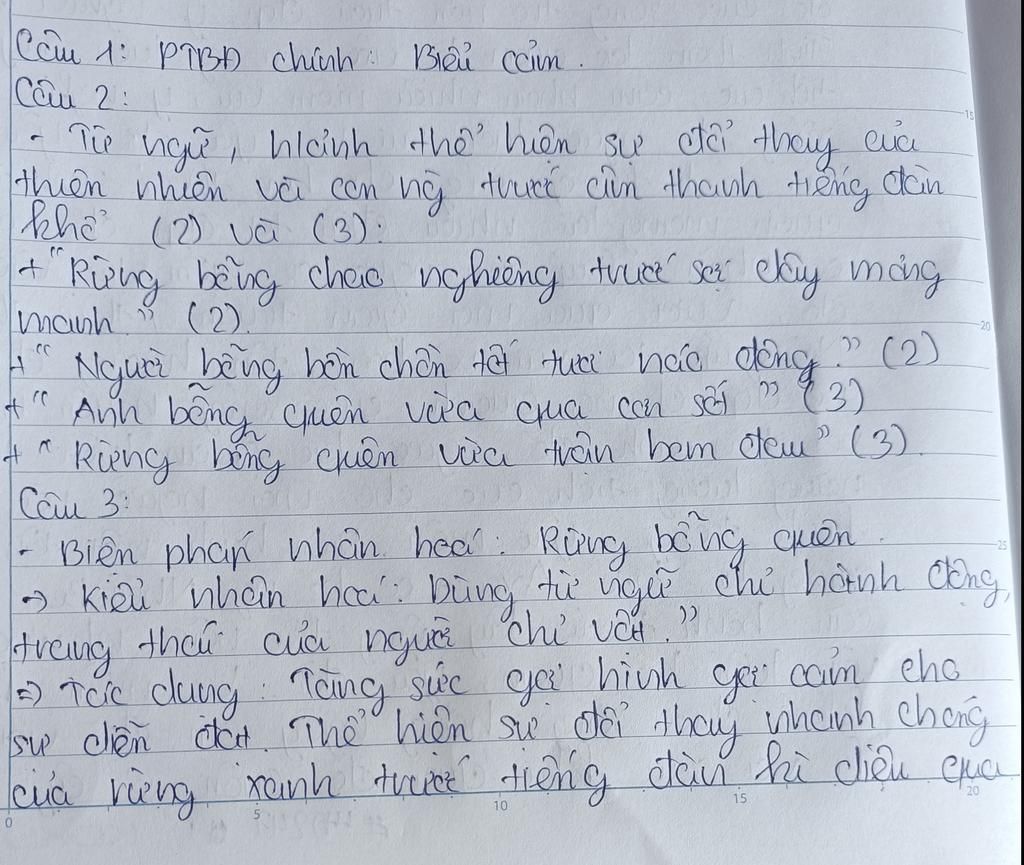 Câu 1: PTBĐ chính: Biểu cảm.
Câu 2:
- Từ ngữ, h/ảnh thể hiện sự đổi thay của
thiên nhiên và con ng trước âm thanh tiếng đàn
khổ (2) và (3):
+ "Rừng bỗng chao nghiêng trước sợi dây mỏng
manh." (2).
+ "Người bỗng bồn chồn tốt tươi náo động." (2)
+ "Anh bỗng quên vừa qua cơn sốt" (3)
+ "Rừng bỗng quên vừa trận bom đau" (3).
Câu 3:
- Biện pháp nhân hoá: Rừng bỗng quên.
→ Kiểu nhân hoá: Dùng từ ngữ chỉ hành động,
trạng thái của người chỉ vật."
⇒ Tác dụng: Tăng sức gợi hình gợi cảm cho
sự diễn đạt. Thể hiện sự đổi thay nhanh chóng
của rừng xanh trước tiếng đàn kì diệu qua
15
20
25
0 5 10 15 20